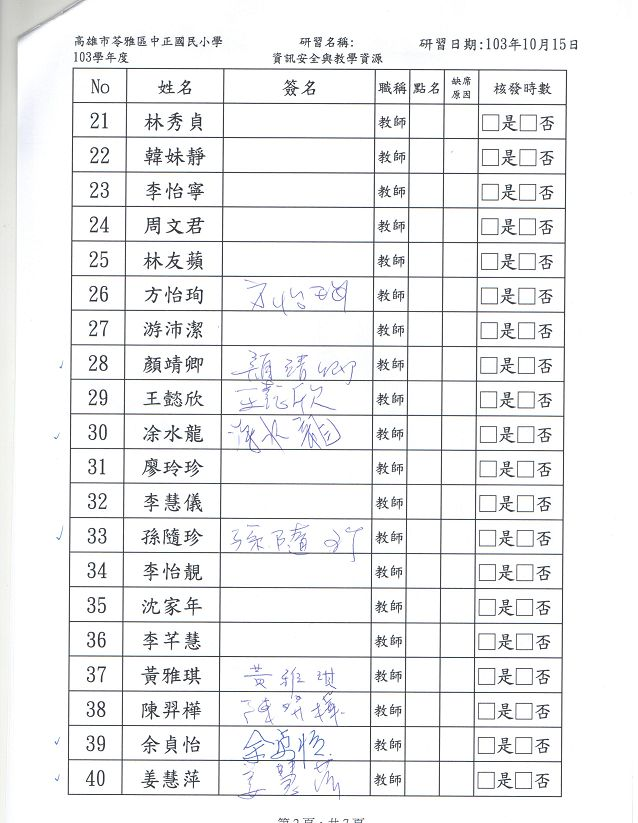 高雄市苓雅區中正國民小學 研習名稱: 研習日期:103年10月15日
103學年度 資訊安全與教學資源
No 姓名 簽名 職稱 點名 缺席原因 核發時數
21 林秀貞 教師 □是□否
22 韓妹靜 教師 □是□否
23 李怡寧 教師 □是□否
24 周文君 教師 □是□否
25 林友蘋 教師 □是□否
26 方怡珣 方怡珣 教師 □是□否
27 游沛潔 教師 □是□否
28 顏靖卿 顏靖卿 教師 □是□否
29 王懿欣 王懿欣 教師 □是□否
30 凃水龍 凃水龍 教師 □是□否
31 廖玲珍 教師 □是□否
32 李慧儀 教師 □是□否
33 孫隨珍 孫隨珍 教師 □是□否
34 李怡靚 教師 □是□否
35 沈家年 教師 □是□否
36 李芊慧 教師 □是□否
37 黃雅琪 黃雅琪 教師 □是□否
38 陳羿樺 陳羿樺 教師 □是□否
39 余貞怡 余貞怡 教師 □是□否
40 姜慧萍 姜慧萍 教師 □是□否